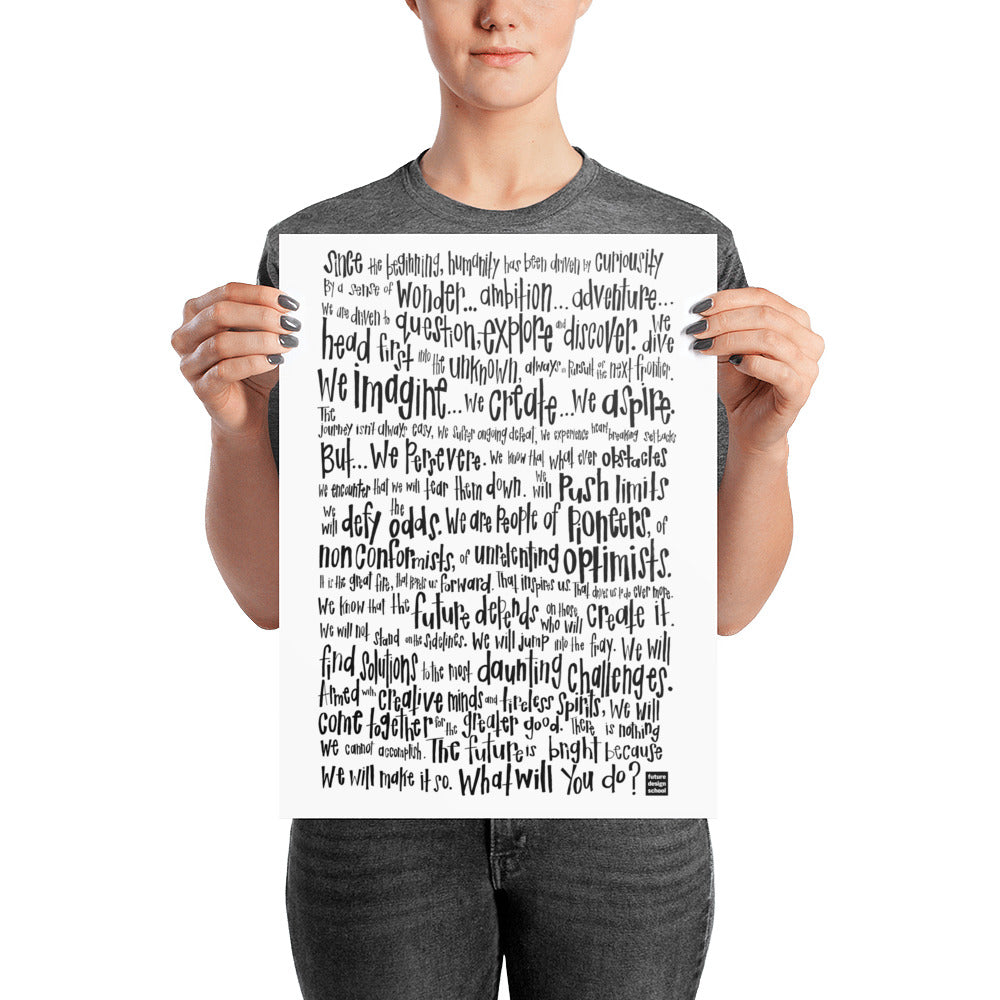 Since the beginning, humanity has been driven by curiousity
By a sense of wonder... ambition... adventure...
We are driven to question, explore and discover. We dive
head first into the unknown, always in pursuit of the next frontier.
We imagine... We create... We aspire.
The journey isn't always easy, we suffer ongoing defeat, we experience heart breaking set backs
But... We Persevere. We know that what ever obstacles
we encounter that we will tear them down. We will push limits
We will defy the odds. We are People of Pioneers, of
non conformists, of unrelenting optimists.
It is the great fire, that propels us forward. That inspires us. That drives us to do ever more.
We know that the future depends on those who will create it.
We will not stand on the sidelines. We will jump into the fray. We will
find solutions to the most daunting challenges.
Armed with creative minds and tireless spirits, we will
come together for the greater good. There is nothing
we cannot accomplish. The future is bright because
We will make it so. What will You do?
future
design
school